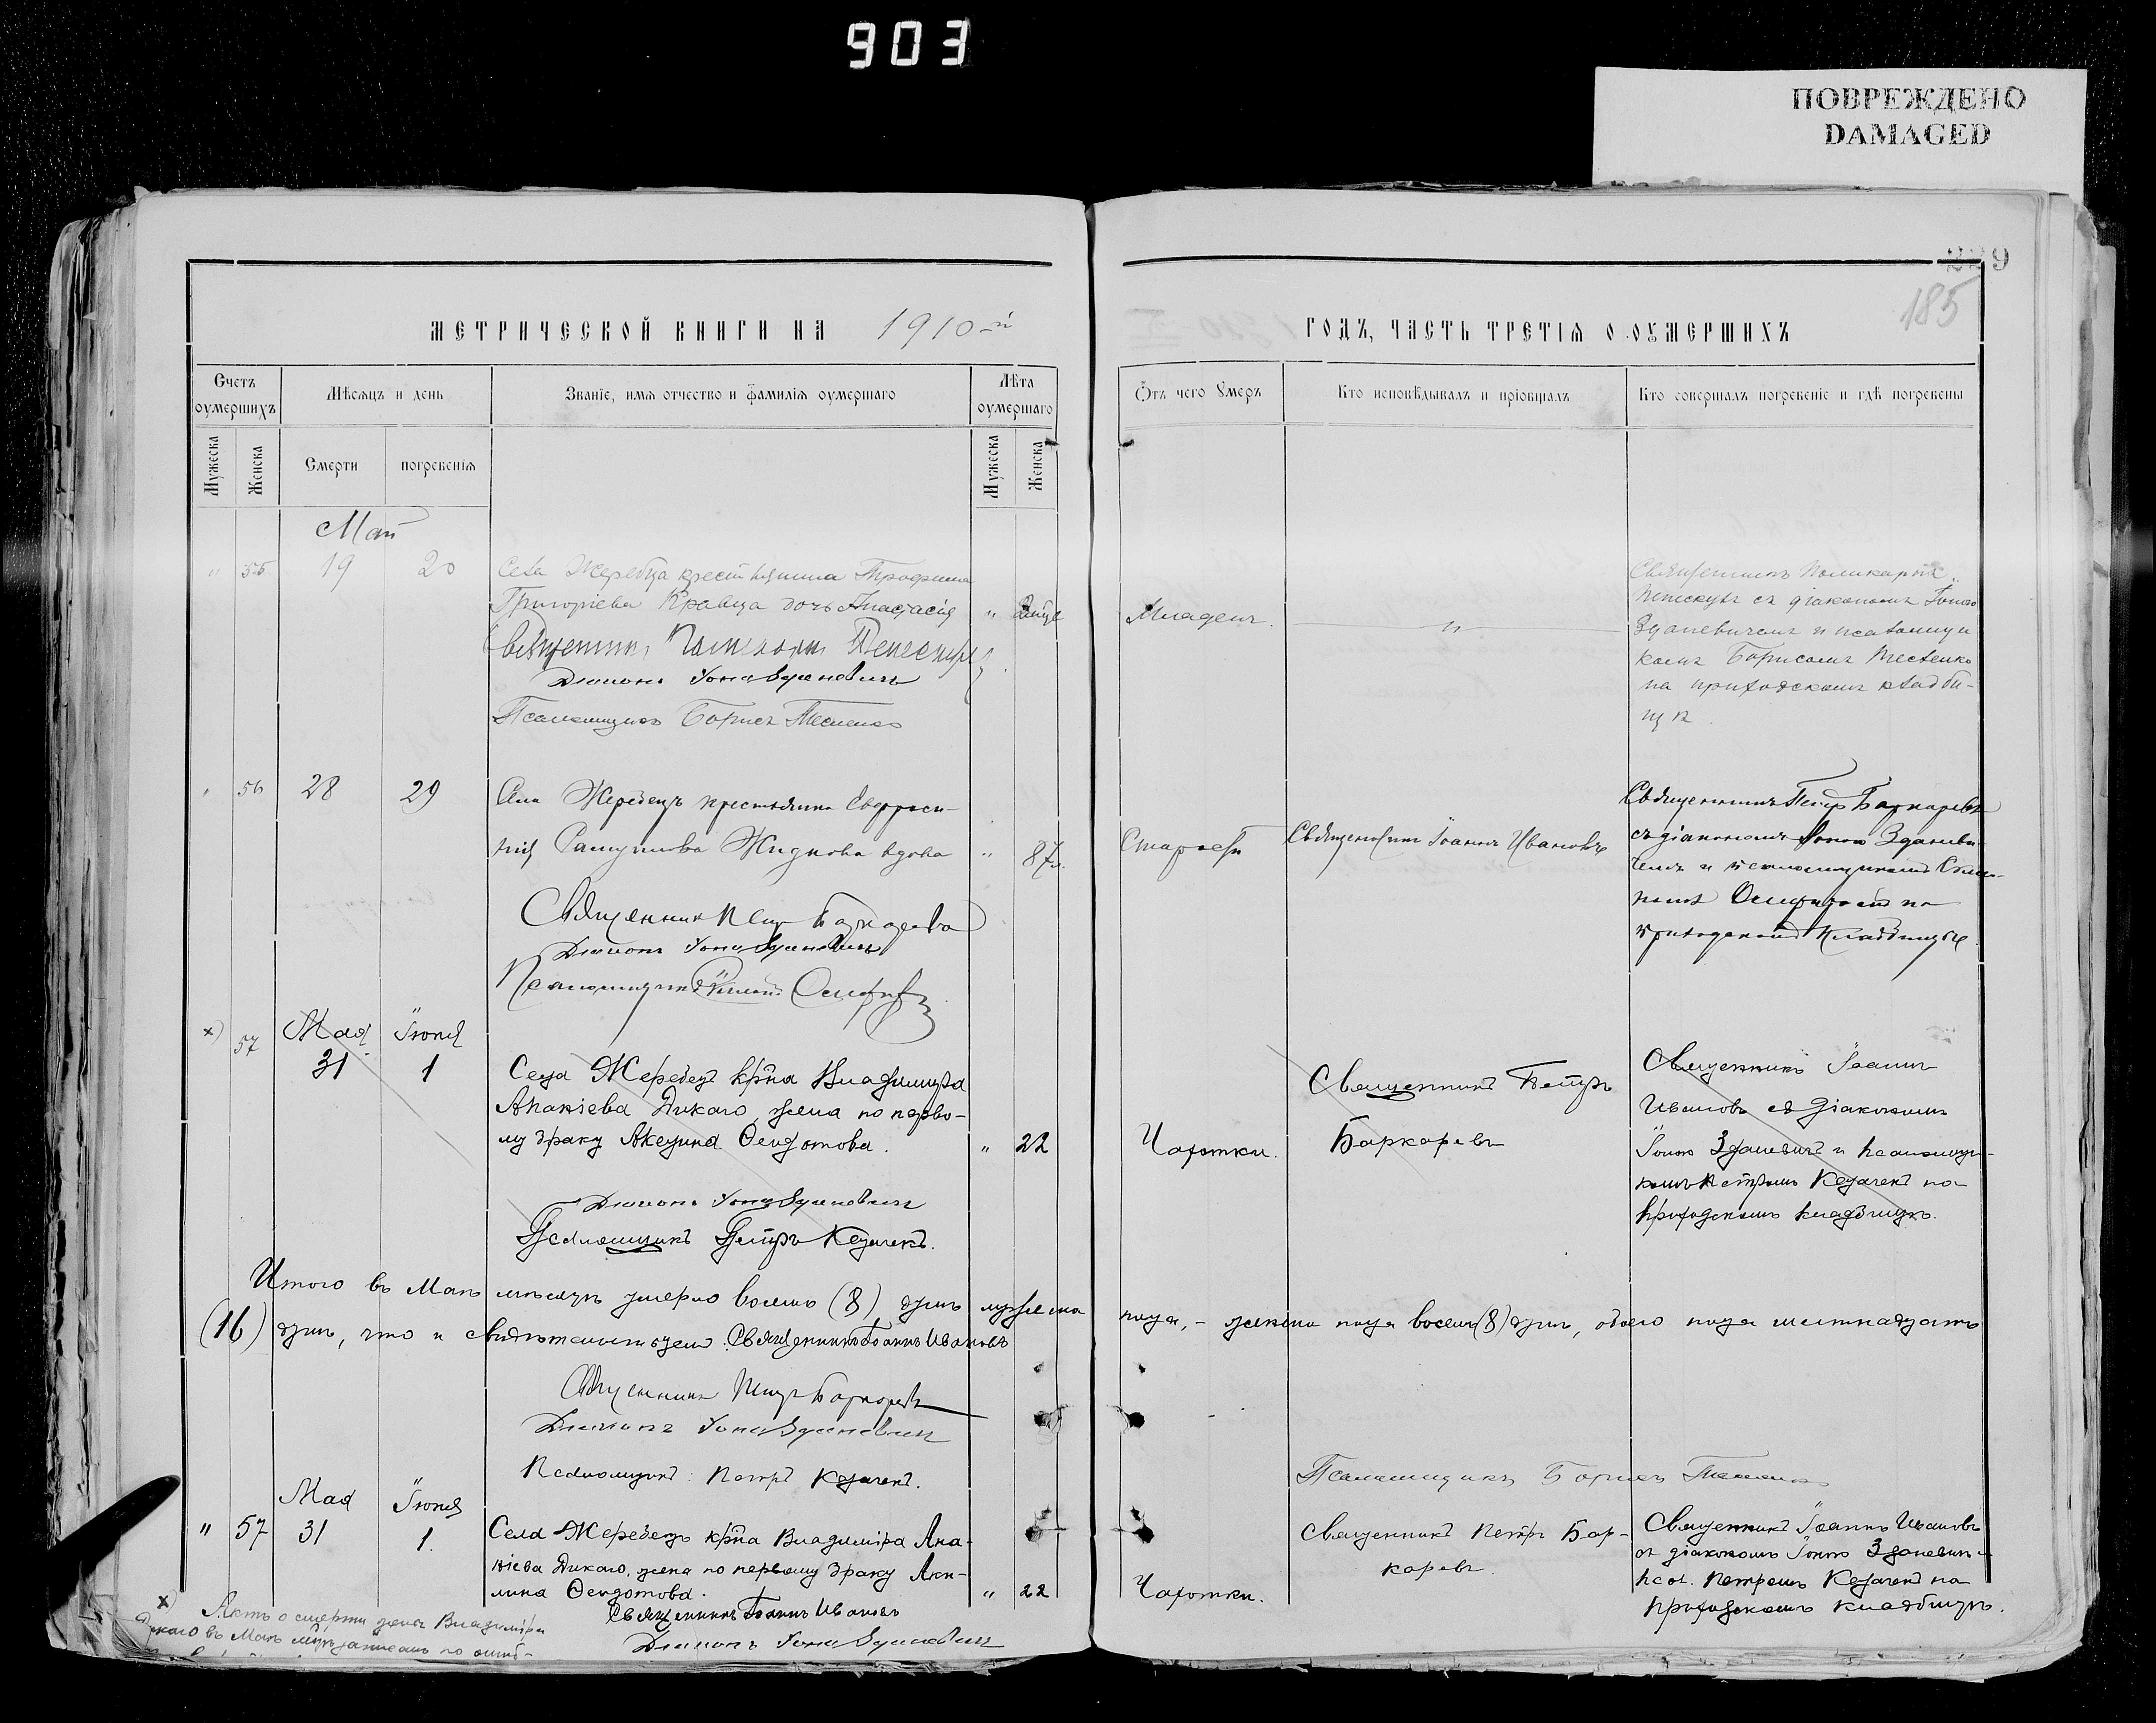 903
ПОВРЕЖДЕНО
DAMAGED
185
МЕТРИЧЕСКОЙ КНИГИ НА 1910-й
ГОДЪ, ЧАСТЬ ТРЕТІЯ О ОУМЕРШИХЪ
Счетъ оумершихъ
Мѣсяцъ и день
Званіе, имя отчество и фамилія оумершаго
Лѣта оумершаго
Отъ чего умеръ
Кто исповѣдывалъ и пріобщалъ
Кто совершалъ погребеніе и гдѣ погребены
Мужеска
Женска
Смерти
погребенія
Мужеска
Женска
Май
" 55 19 20
Села Жеребца крестьянина Трофима
Григоріева Кравца дочь Анастасія "
Священникъ
Діаконъ Іона Зданевичъ
Псаломщикъ Борисъ
Младен.
"
Священникъ Поликарпъ
съ діакономъ Іоною
Зданевичемъ и псаломщи
комъ Борисомъ
на приходскомъ кладби-
щѣ
" 56 28 29
Села Жеребецъ крестьянка Евфроси-
нія Жидкова вдова " 87л.
Священникъ Петръ Баркаревъ
Діаконъ Іона Зданевичъ
Псаломщикъ
Старости
Священникъ Іоаннъ Ивановъ
Священникъ Петръ Баркаревъ
съ діакономъ Іоною Зданеви
чемъ и псаломщикомъ
на
приходскомъ кладбищѣ.
х) 57
Мая 31
Іюня 1
Села Жеребецъ кр-на Владиміра
Ананіева Дикаго, жена по перво-
му браку Акелина Ѳеодотова. " 22
Діаконъ Іона Зданевичъ
Псаломщикъ Петръ Казачекъ.
Чахотки.
Священникъ Петръ
Баркаревъ
Священникъ Іоаннъ
Ивановъ съ діакономъ
Іоною Зданевичъ и псаломщи-
комъ Петромъ Казачекъ на
приходскомъ кладбищѣ.
Итого въ Маѣ мѣсяцѣ умерло восемь (8) душъ мужеска пола, - женска пола восемь (8) душъ, обоего пола шестнадцать
(16) душъ, что и свидѣтельствуемъ. Священникъ Іоаннъ Ивановъ
Священникъ Петръ Баркаревъ
Діаконъ Іона Зданевичъ
Псаломщикъ: Петръ Казачекъ.
Псаломщикъ Борисъ
Мая
Іюня
" 57 31 1.
Села Жеребецъ кр-на Владиміра Ана-
ніева Дикаго, жена по первому браку Аки-
лина Ѳеодотова. " 22
Священникъ Іоаннъ Ивановъ
Діаконъ Іона Зданевичъ
Чахотки.
Священникъ Петръ Бар-
каревъ.
Священникъ Іоаннъ Ивановъ
съ діакономъ Іоною Зданевич
псал. Петромъ Казачекъ на
приходскомъ кладбищѣ.
х) Актъ о смерти жены Владиміра
Дикаго въ Маѣ м-цѣ записанъ по ошиб-